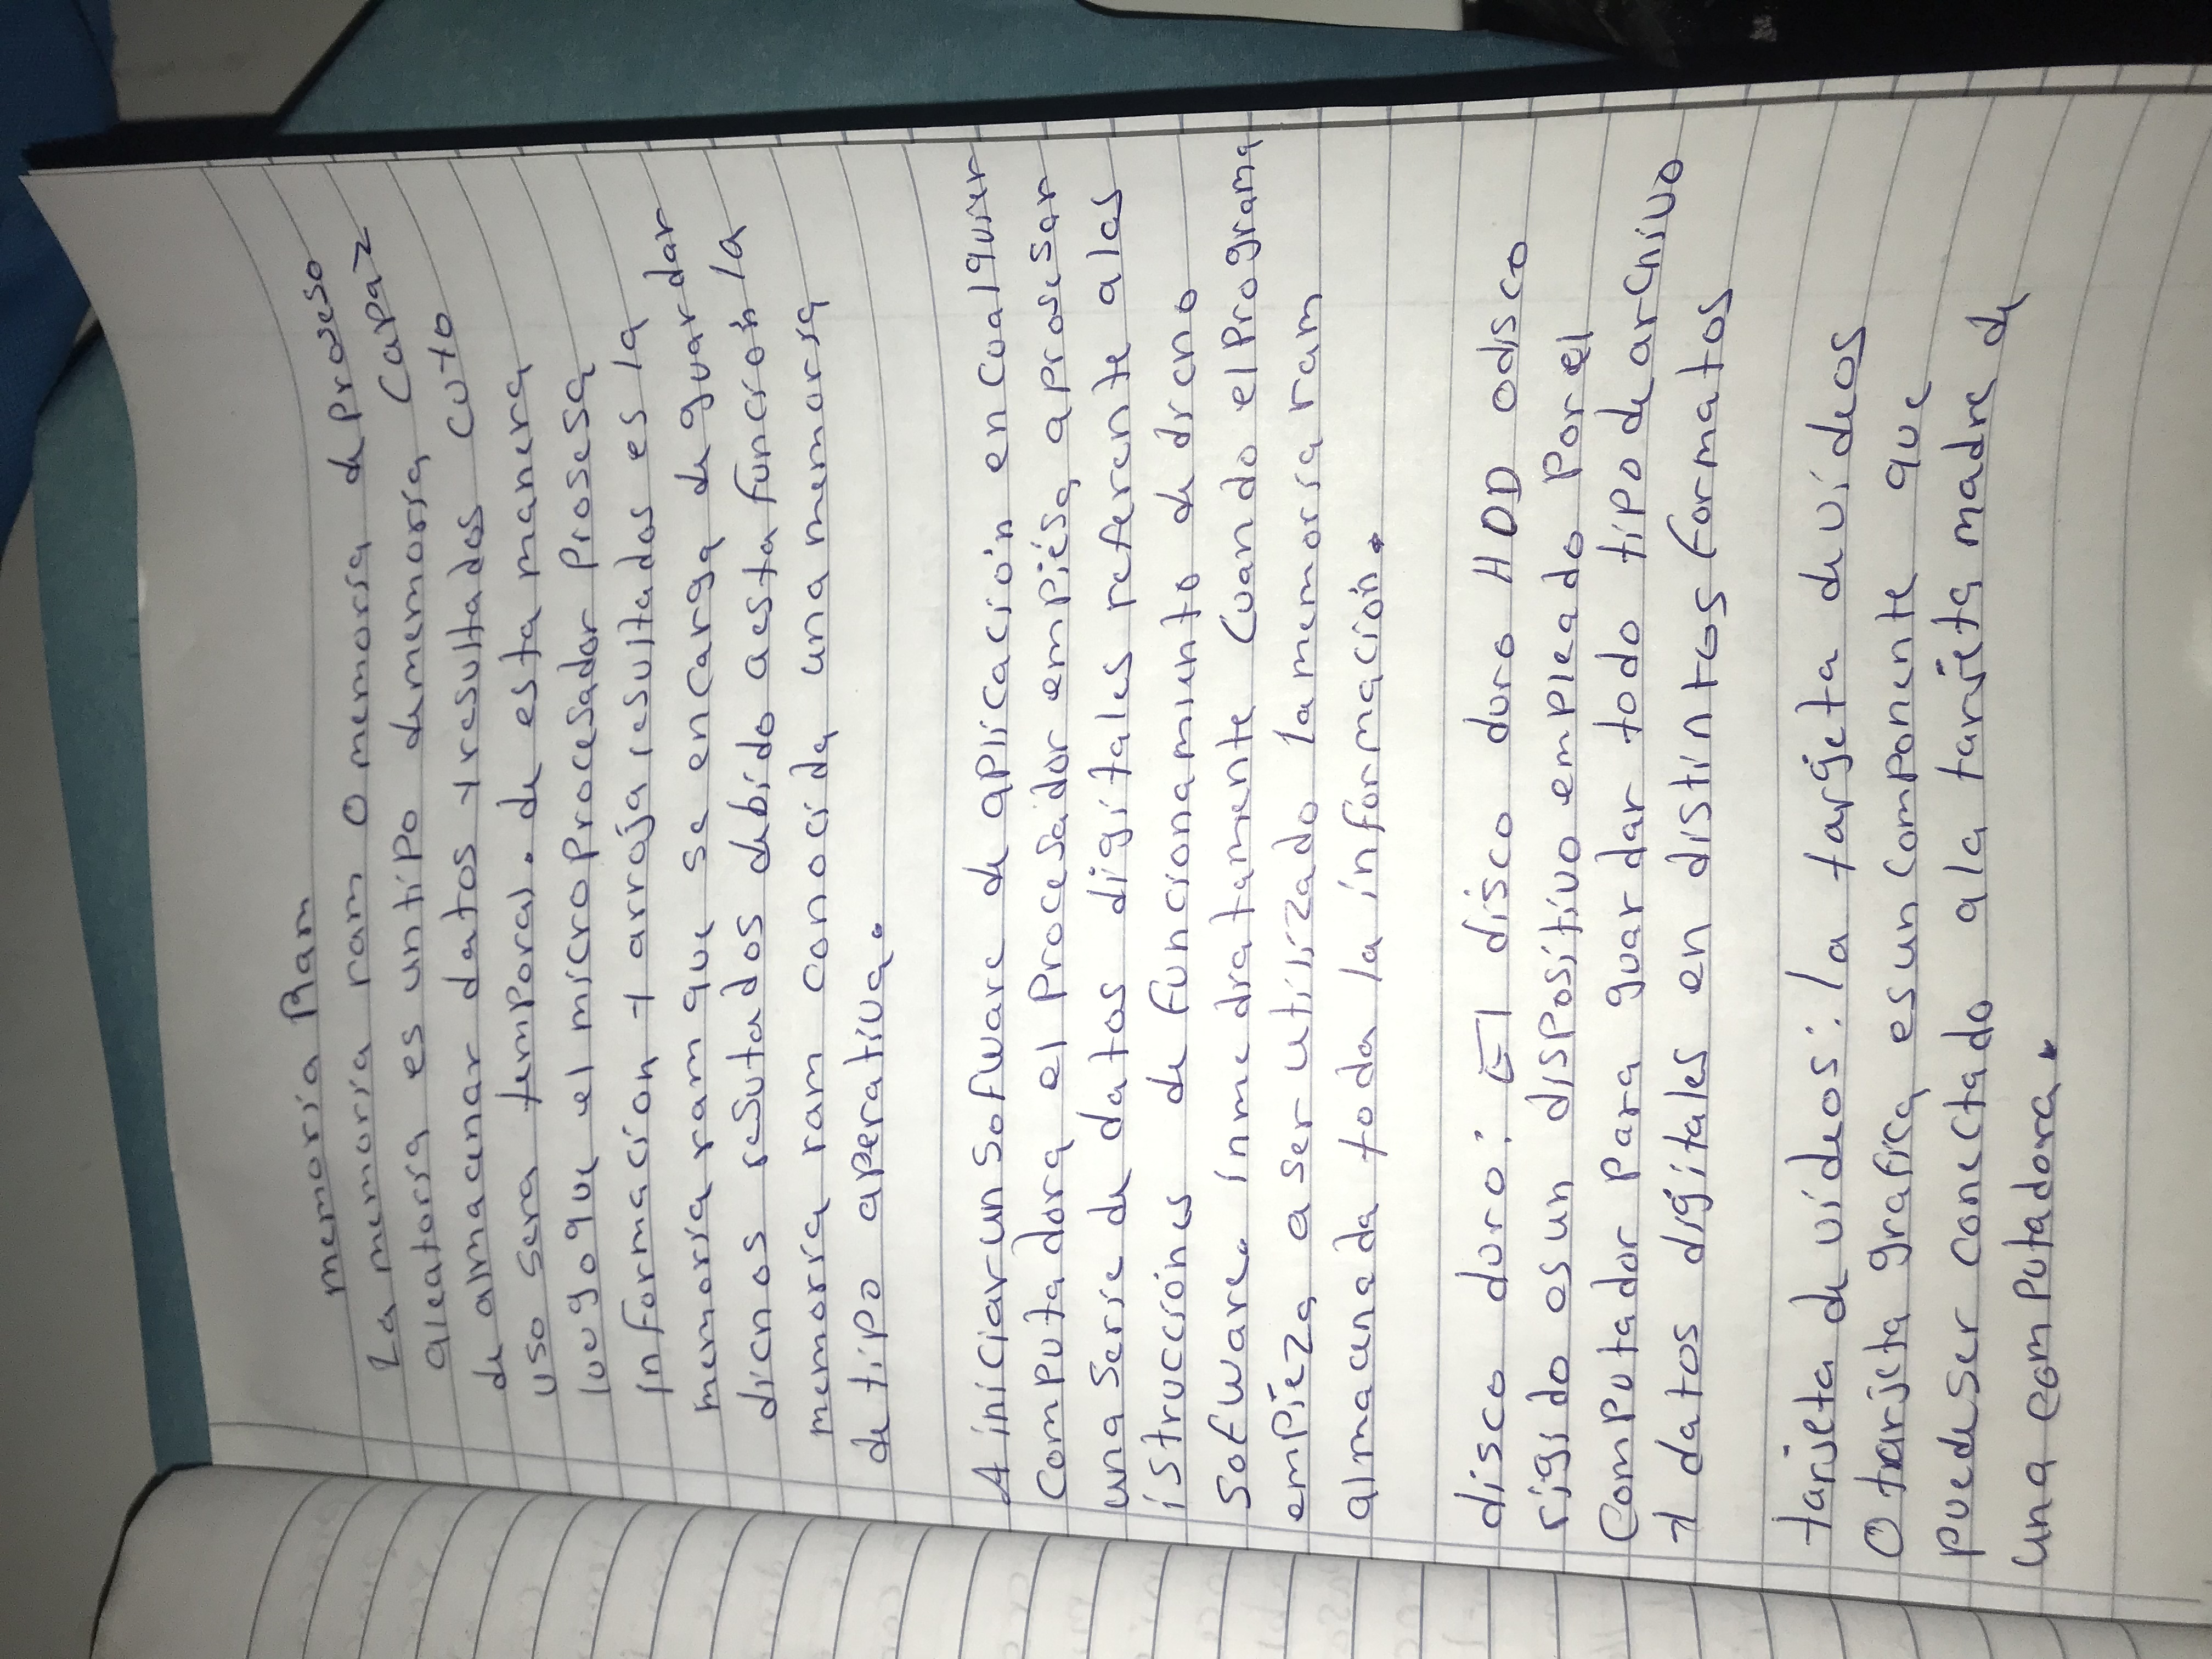 memoria Ram
La memoria ram O memoria de Proseso
aleatoria es un tipo de memoria Capaz
de almacenar datos y resultados cuto
uso sera temporal. de esta manera
luego que el microprocesador Prosesa
informacion y arroja resultados es la
memoria ram que se encarga de guardar
dichos resutados debido a esta funcion la
memoria ram conocida una memoria
de tipo aperativa.
A iniciar un sofware de aplicación en cualquier
Computadora el procesador empiesa a prosesar
una serie de datos digitales referente a los
istrucciónes de funcionamiento de dicho
Sofware. inmediatamente Cuando el Programa
empieza a ser utilizado la memoria ram
almacena toda la información.
disco duro: El disco duro HDD o disco
rigido es un dispositivo empleado por el
Computador Para guardar todo tipo de archivo
y datos digitales en distintos formatos
tarjeta de videos: la tarjeta de videos
O tarjeta grafica es un componente que
puede ser conectado a la tarjeta madre de
una computadora.